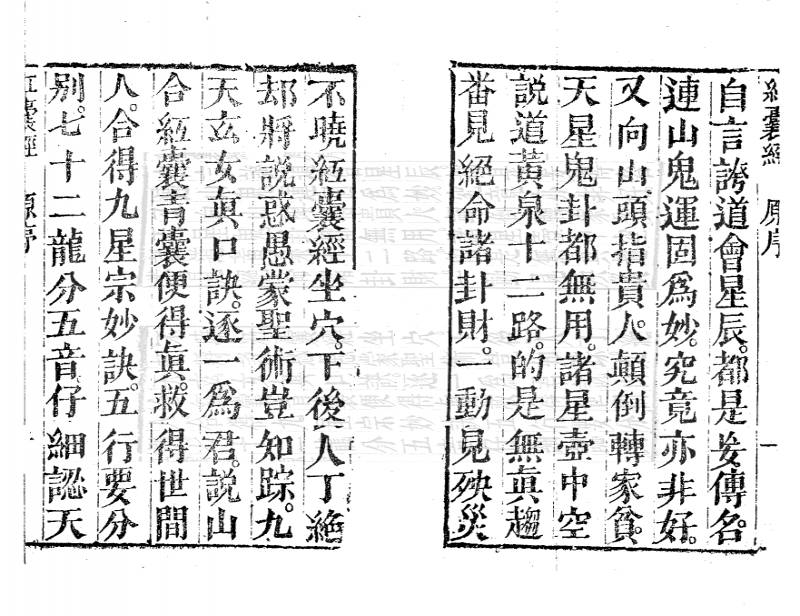 紅囊經 原序 一
自言誇道會星辰。都是妄傳名。
連山鬼運固爲妙。究竟亦非好。
又向山頭指貴人。顛倒轉家貧。
天星鬼卦都無用。諸星壺中空
說道黃泉十二路。的是無真趨
番見絕命諸卦財。一動見殃災
不曉紅囊經坐穴。下後人丁絕
却將說惑愚蒙聖術豈知踪。九
天玄女眞口訣。逐一爲君說山
合紅囊青囊便得眞。救得世間
人。合得九星宗妙訣。五行要分
別。七十二龍分五音。仔細認天
紅囊經 原序